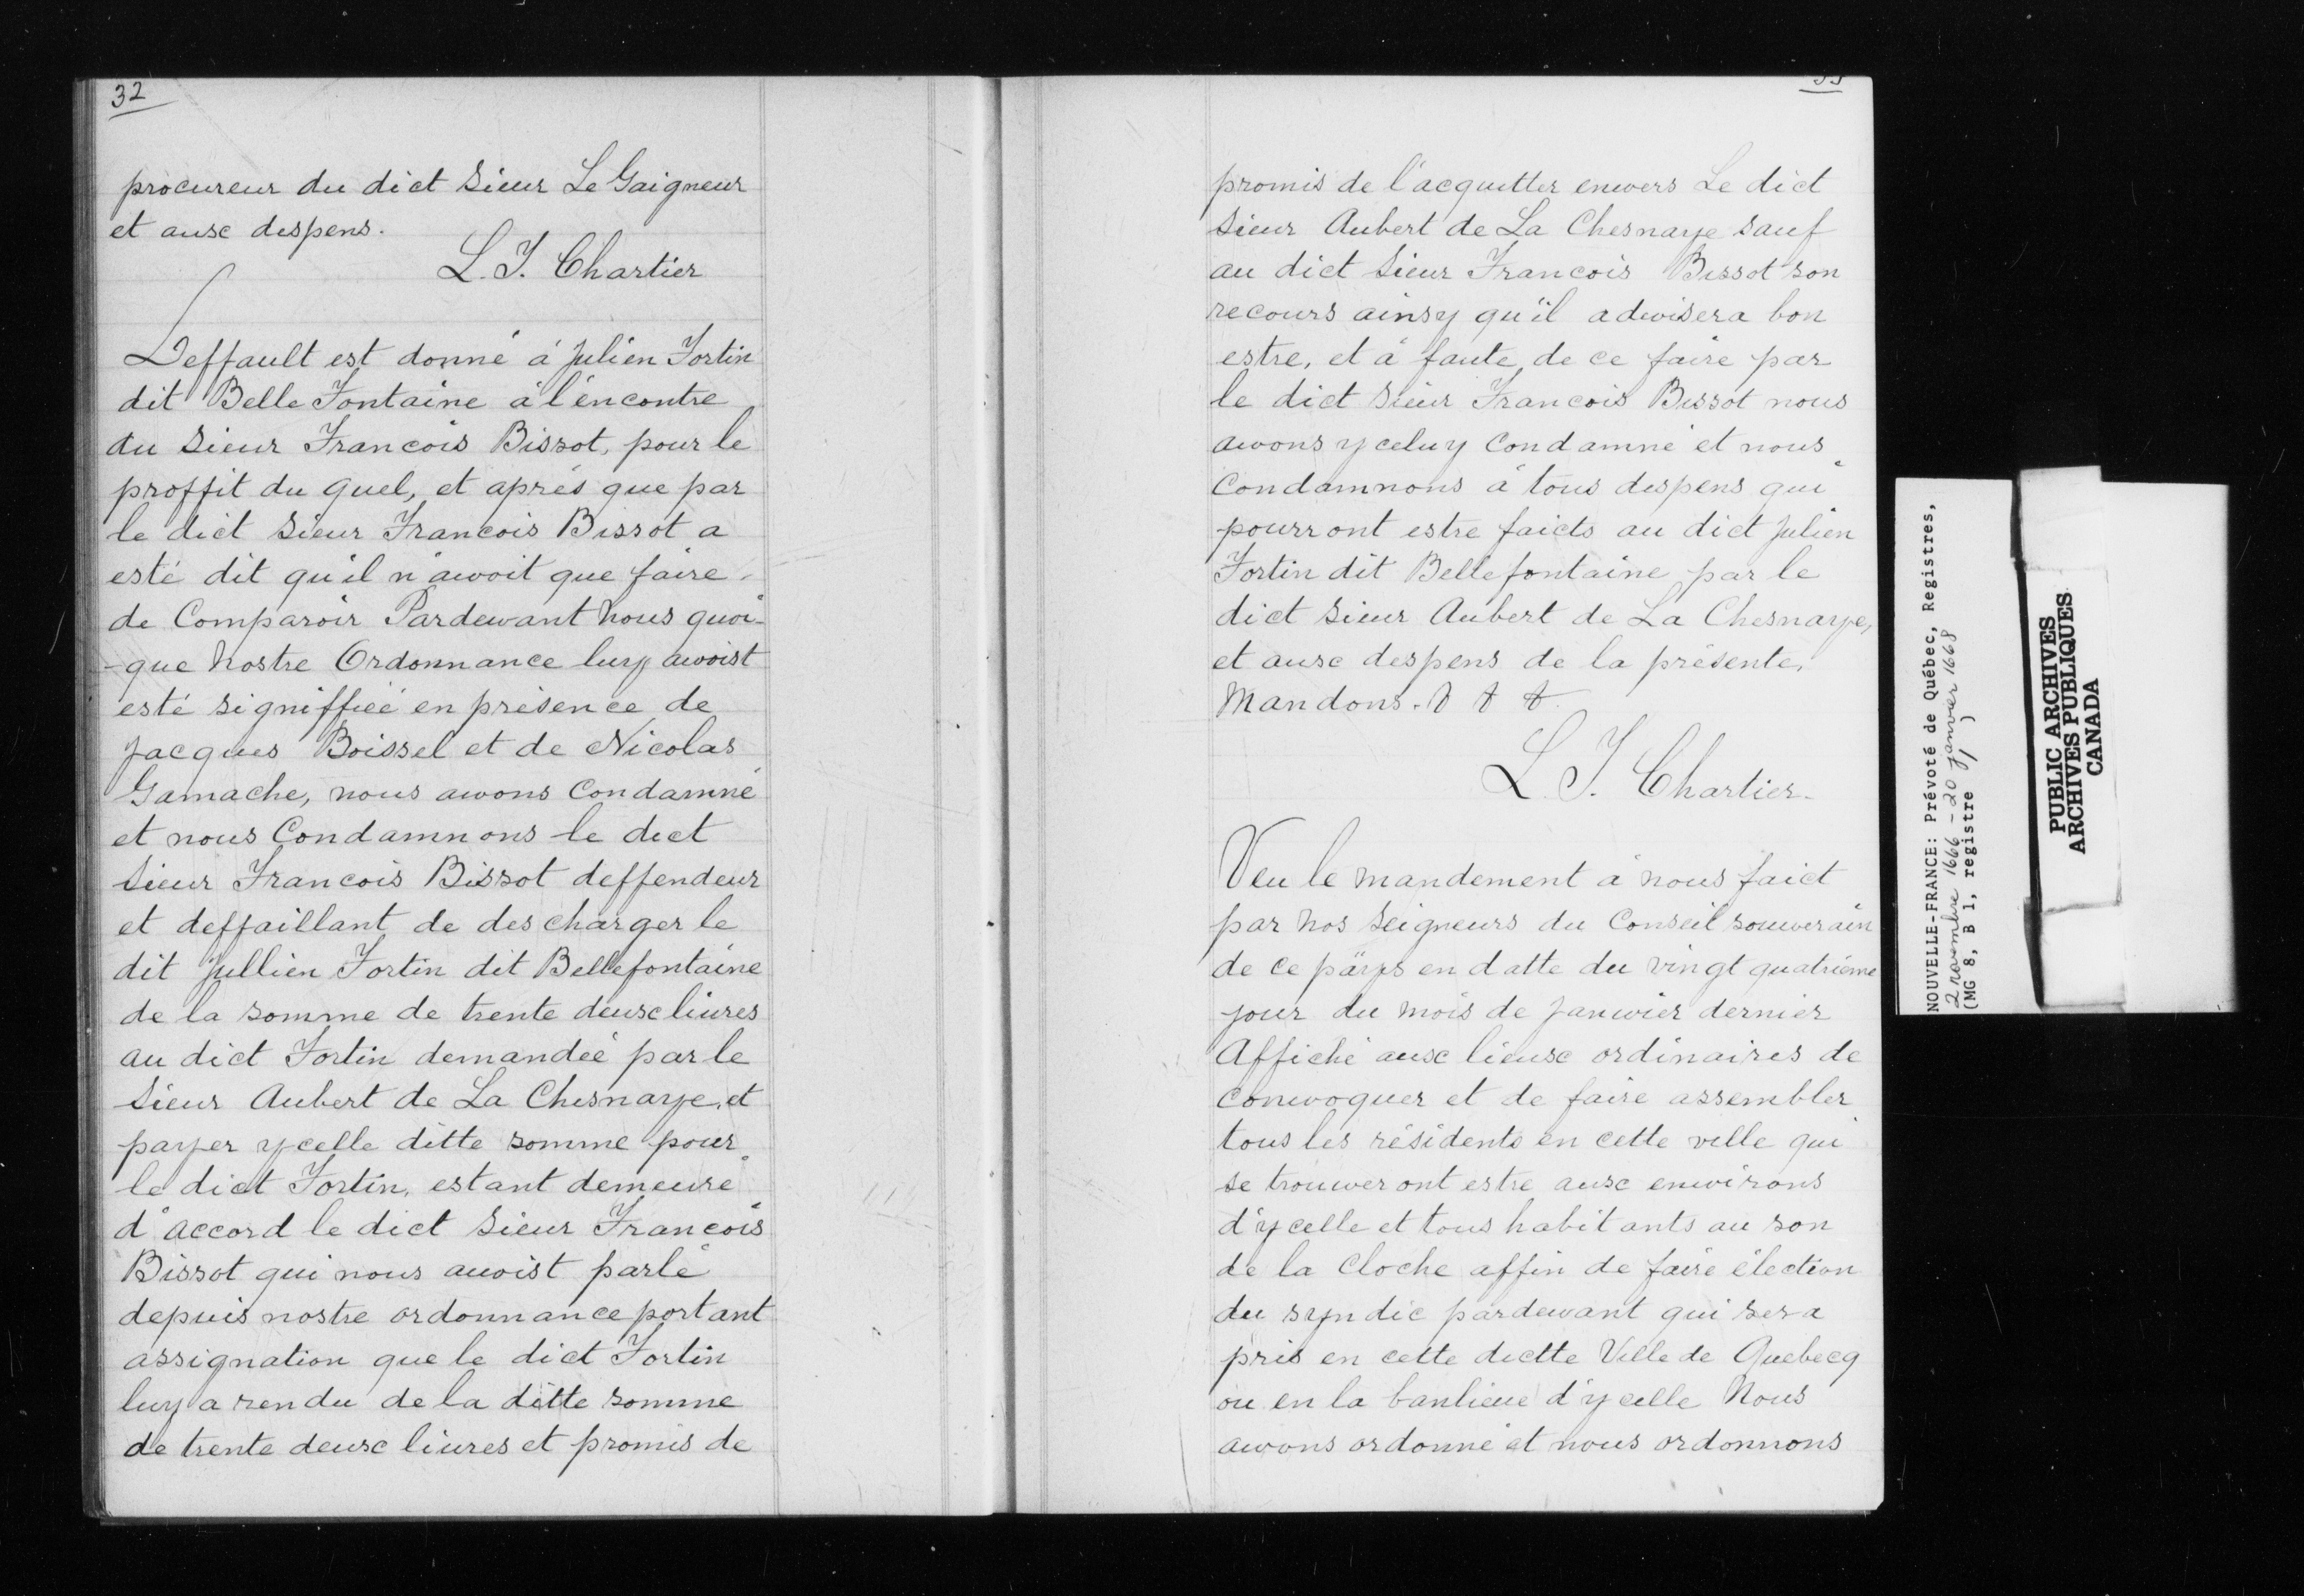 32
procureur du dict Sieur Le Gaigneur
et ausc despens.
L. T. Chartier
Deffault est donné à Julien Fortin
dit Belle Fontaine à l'encontre
du Sieur Francois Bissot, pour le
proffit du quel, et aprés que par
le dict Sieur Francois Bissot a
esté dit qu'il n'awoit que faire
de Comparoir Pardewant Nous quoi-
-que Nostre Ordonnance luy awoist
esté signiffiéé en présence de
Jacques Boissel et de Nicolas
Gamache, nous awons Condamné
et nous Condamnons le dict
Sieur Francois Bissot deffendeur
et deffaillant de descharger le
dit Jullien Fortin dit Bellefontaine
de la somme de trente deusc liures
au dict Fortin demandéé par le
Sieur Aubert de La Chesnaye, et
payer ycelle ditte somme pour
le dict Fortin, estant demeuré
d'accord le dict Sieur Francois
Bissot qui nous auoist parlé
depuis nostre ordonnance portant
assignation que le dict Fortin
luy a rendu de la ditte somme
de trente deusc liures et promis de
33
promis de l'acquitter enwers Le dict
Sieur Aubert de La Chesnaye sauf
au dict Sieur Francois Bissot son
recours ainsy qu'il adwisera bon
estre, et à faute de ce faire par
le dict Sieur Francois Bissot nous
awons yceluy Condamné et nous
Condamnons à tous despens qui
pourront estre faicts au dict Julien
Fortin dit Bellefontaine par le
dict Sieur Aubert de La Chesnaye,
et ausc despens de la présente.
Mandons. & & &.
L. T. Chartier.
Veu le mandement à nous faict
par Nos Seigneurs du Conseil souwerain
de ce päys en datte du vingt quatriéme
jour du mois de Janwier dernier
Affiché ausc lieusc ordinaires de
Conwoquer et de faire assembler
tous les résidents en cette ville qui
se trouweront estre ausc enwirons
d'ycelle et tous habitants au son
de la Cloche affin de faire élection
du syndic pardewant qui sera
pris en cette dictte Ville de Quebecq
ou en la banlieue d'ycelle Nous
awons ordonné et nous ordonnons
NOUVELLE-FRANCE: Prévoté de Québec, Registres,
2 novembre 1666 - 20 janvier 1668
(MG 8, B 1, registre 71 )
PUBLIC ARCHIVES
ARCHIVES PUBLIQUES
CANADA